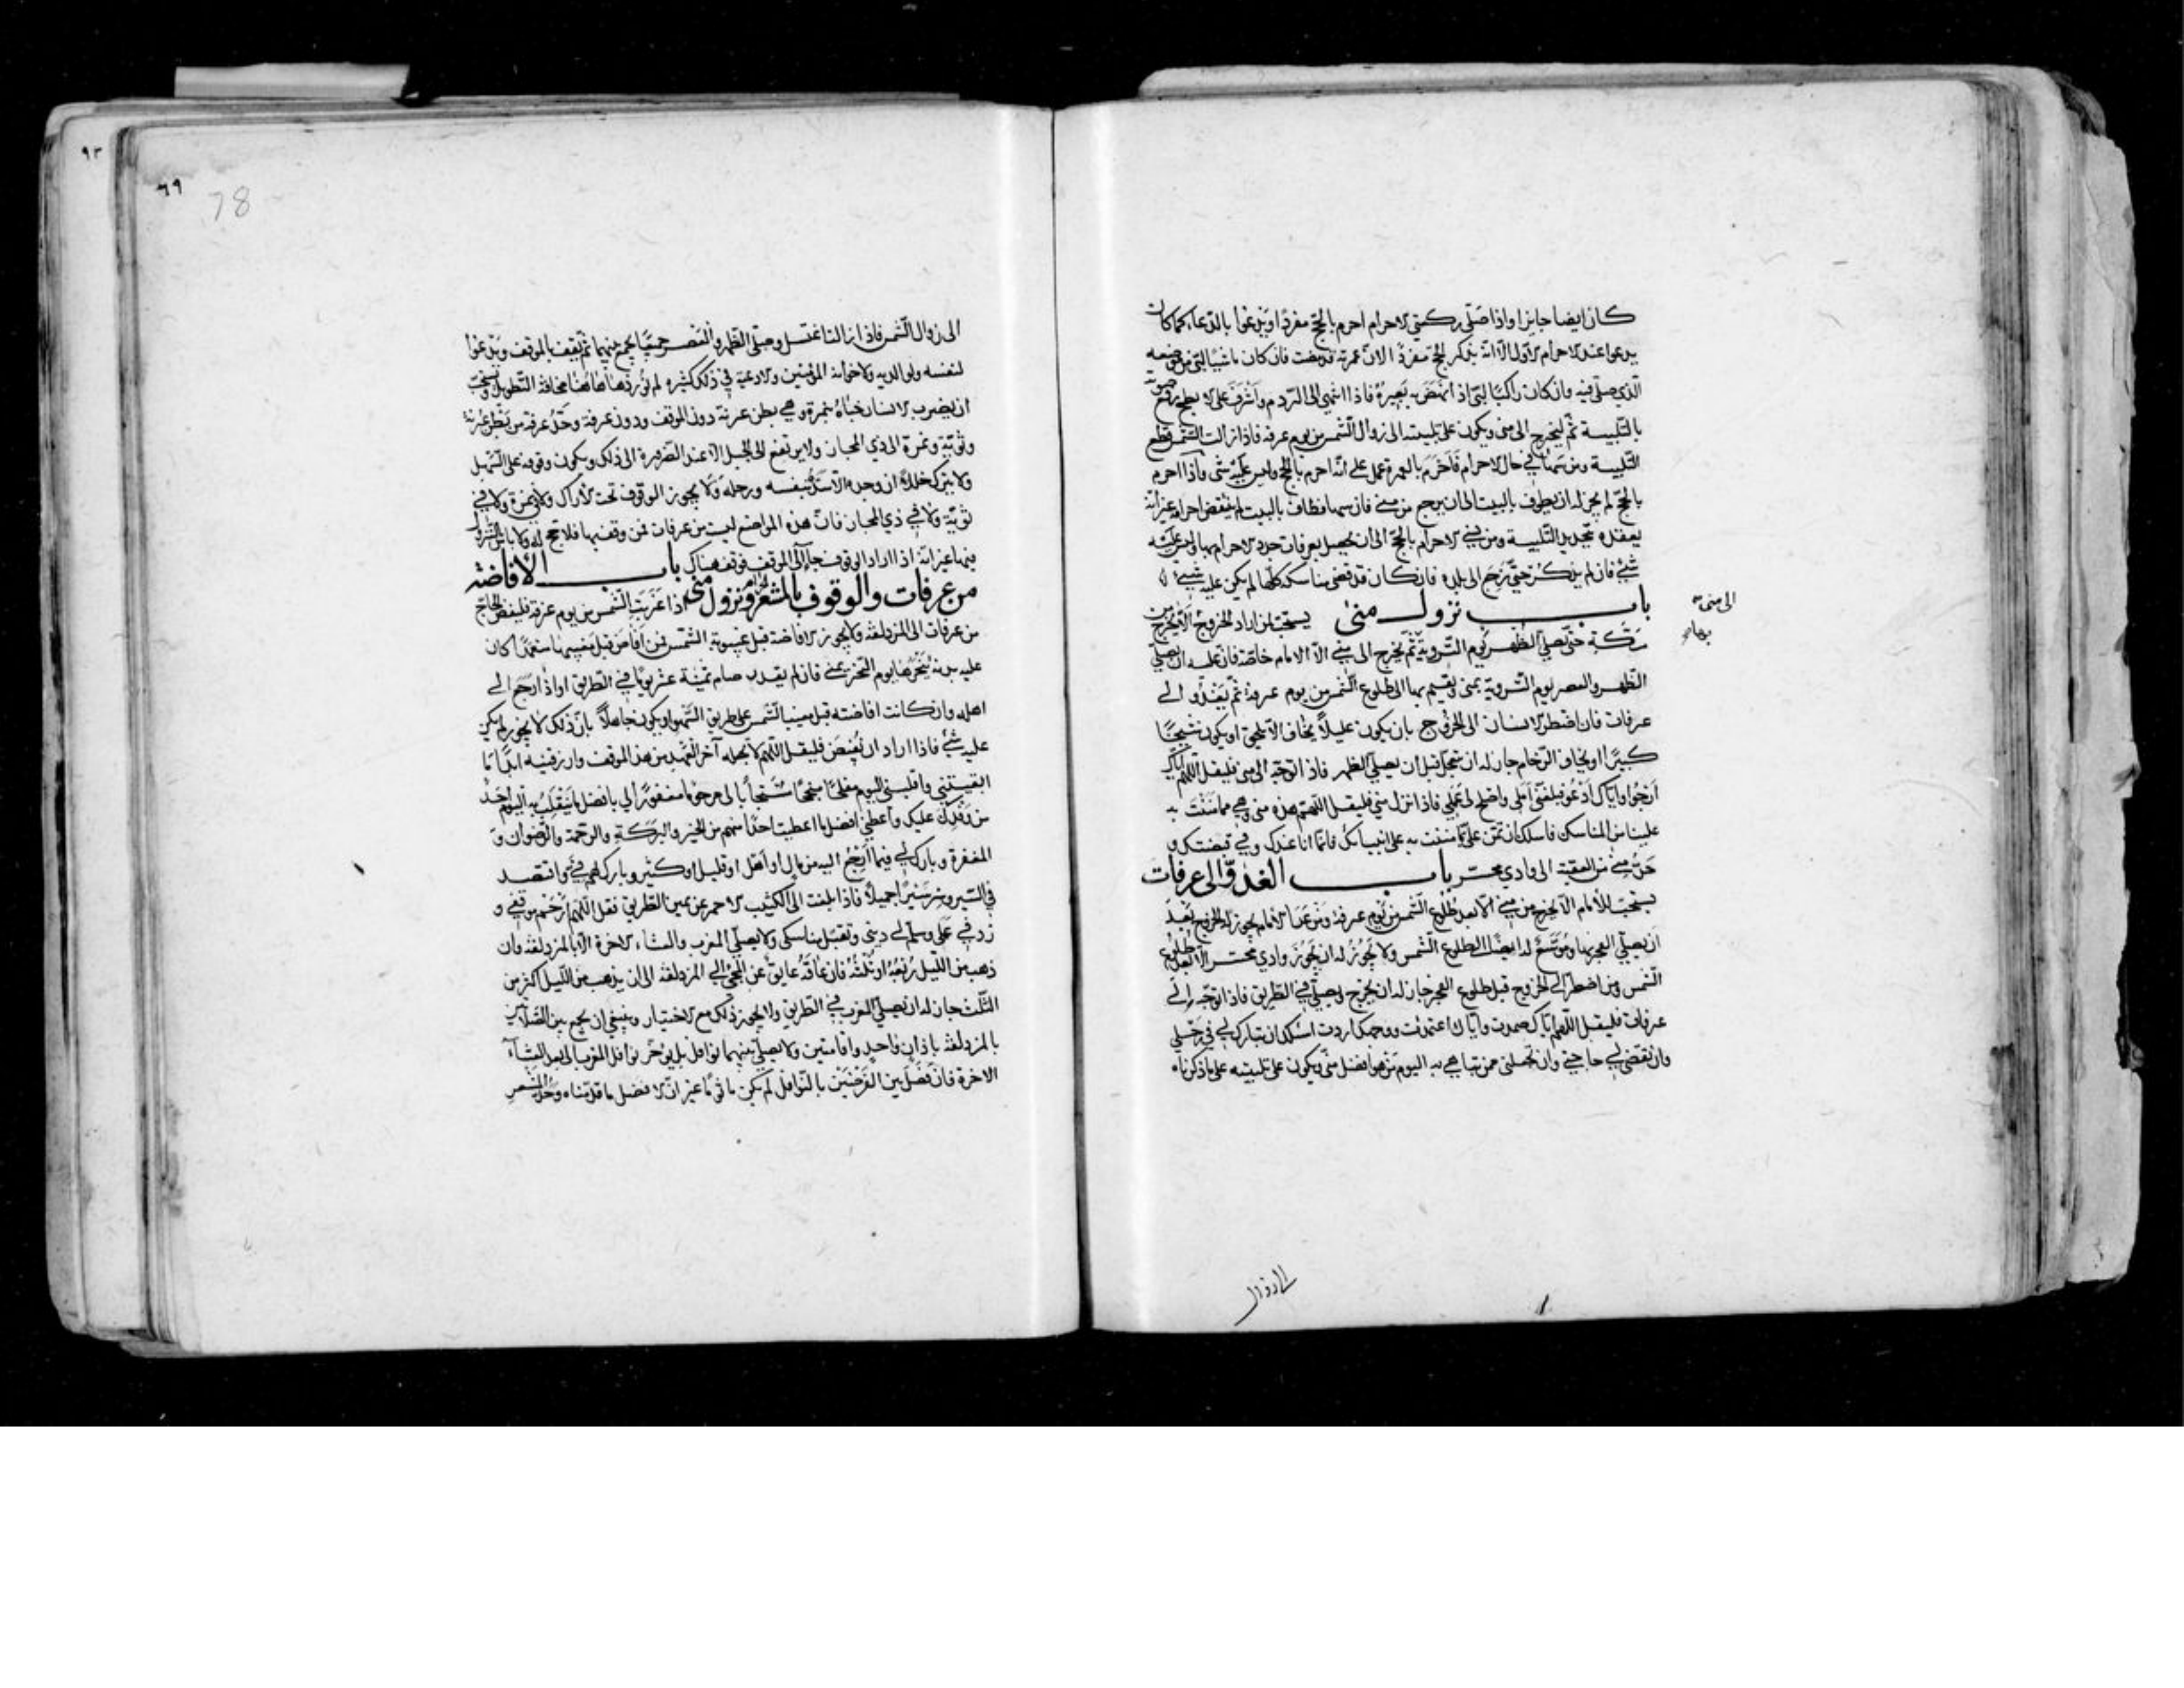 كان ايضا جايزا واذا صلى ركعتي الاحرام احرم بالحج مفردا ويدعوا بالدعاء كما كان
يدعوا عند الاحرام الاول الا انه يذكر الحج مفردا لان عمرته قد مضت فان كان ماشيا لبى من موضعه
الذي صلى فيه وان كان راكبا لبى اذا نهض به بعيره فاذا انتهى الى الردم واشرف على الابطح رفع صوته
بالتلبية ثم ليخرج الى منى ويكون على تلبيته الى زوال الشمس من يوم عرفة فاذا زالت الشمس قطع
التلبية ومن سها في حال الاحرام فاحرم بالعمرة عمل على انه احرم بالحج وليس عليه شي واذا احرم
بالحج لم يجز له ان يطوف بالبيت الى ان يرجع من منى فان سها فطاف بالبيت لم ينتقض احرامه غير انه
يعقده بتجديد التلبية ومن نسي الاحرام بالحج الى ان يحصل بعرفات جدد الاحرام بها وليس عليه
شيء فان لم يذكر حتى يرجع الى بلده فان كان قد قضى مناسكه كلها لم يكن عليه شيء
باب نزول منى يستحب لمن اراد الخروج الا يخرج من
مكة حتى يصلي الظهر يوم التروية ثم يخرج الى منى الا الامام خاصة فان عليه ان يصلي
الظهر والعصر يوم التروية بمنى ويقيم بها الى طلوع الشمس من يوم عرفة ثم يغدوا الى
عرفات فان اضطر الانسان الى الخروج بان يكون عليلا يخاف الا يلحق او يكون شيخا
كبيرا او يخاف الزحام جاز له ان يتعجل قبل ان يصلي الظهر فاذا توجه الى منى فليقل اللهم اياك
ارجوا واياك ادعو فبلغني املي واصلح لي عملي فاذا نزل منى فليقل اللهم هذه منى وهي مما مننت به
علينا من المناسك فاسلك ان تمن علي بما مننت به على انبيائك فانما انا عبدك وفي قبضتك و
حد منى من العقبة الى وادي محسر باب الغدو الى عرفات
يستحب للامام الا يخرج من منى الا بعد طلوع الشمس من يوم عرفة ومن عدا الامام يجوز له الخروج بعد
ان يصلي الفجر بها وموسع له ايضا الى طلوع الشمس ولا يجوز له ان يجوز وادي محسر الا بعد طلوع
الشمس ومن اضطر الى الخروج قبل طلوع الفجر جاز له ان يخرج ويصلي في الطريق فاذا توجه الى
عرفات فليقل اللهم اياك صمدت واياك اعتمدت ووجهك اردت اسئلك ان تبارك لي في رحلي
وان تقضي لي حاجتي وان تجعلني ممن تباهي به اليوم من هو افضل مني ويكون على تلبيته على ما ذكرناه
الى منى
الى زوال
٩٣
٦٩
78
الى زوال الشمس فاذا زالت اغتسل وصلى الظهر والعصر جميعا يجمع بينهما ثم يقف بالموقف ويدعوا
لنفسه ولوالديه ولاخوانه المؤمنين والادعية في ذلك كثيرة لم نوردها هاهنا مخافة التطويل ويستحب
ان يضرب الانسان خباه بنمرة وهي بطن عرنة دون الموقف ودون عرفة وحد عرفة من بطن عرنة
وثوية ونمرة الى ذي المجاز ولا يرتفع الى الجبل الا عند الضرورة الى ذلك ويكون وقوفه على السهل
ولا يترك خللا ان وجده الا سده بنفسه ورحله ولا يجوز الوقوف تحت الاراك ولا في نمرة ولا في
ثوية ولا في ذي المجاز فان هذه المواضع ليست من عرفات فمن وقف بها فلا حج له ولا باس بالنزول
بها غير انه اذا اراد الوقوف جاء الى الموقف فوقف هناك باب الافاضة
من عرفات والوقوف بالمشعر ونزول منى اذا غربت الشمس من يوم عرفة فليفض الحاج
من عرفات الى المزدلفة ولا يجوز الافاضة قبل غيبوبة الشمس فمن افاض قبل مغيبها متعمدا كان
عليه بدنة ينحرها يوم النحر بمنى فان لم يقدر صام ثمنية عشر يوما في الطريق او اذا رجع الى
اهله وان كانت افاضته قبل مغيب الشمس على طريق السهو او يكون جاهلا بان ذلك لا يجوز لم يكن
عليه شيء فاذا اراد ان يفيض فليقل اللهم لا تجعله آخر العهد من هذا الموقف وارزقنيه ابدا ما
ابقيتني واقلبني اليوم مفلحا منجحا مستجابا لي مرحوما مغفورا لي بافضل ما ينقلب به اليوم احد
من وفدك عليك واعطني افضل ما اعطيت احدا منهم من الخير والبركة والرحمة والرضوان و
المغفرة وبارك لي فيما ارجع اليه من مال او اهل او قليل او كثير وبارك لهم في واقتصد
في السير وسر سيرا جميلا فاذا بلغت الى الكثيب الاحمر عن يمين الطريق فقل اللهم ارحم موقفي و
زد في عملي وسلم لي ديني وتقبل مناسكي ولا يصلي المغرب والعشاء الاخرة الا بالمزدلفة وان
ذهب من الليل ربعه او ثلثه فان عاقه عايق عن المجي الى المزدلفة الى ان يذهب من الليل اكثر من
الثلث جاز له ان يصلي المغرب في الطريق ولا يجوز ذلك مع الاختيار وينبغي ان يجمع بين الصلاتين
بالمزدلفة باذان واحد واقامتين ولا يصلي بينهما نوافل بل يوخر نوافل المغرب الى بعد العشاء
الاخرة فان فصل بين الفرضين بالنوافل لم يكن ماثوما غير ان الافضل ما قدمناه وحد المشعر